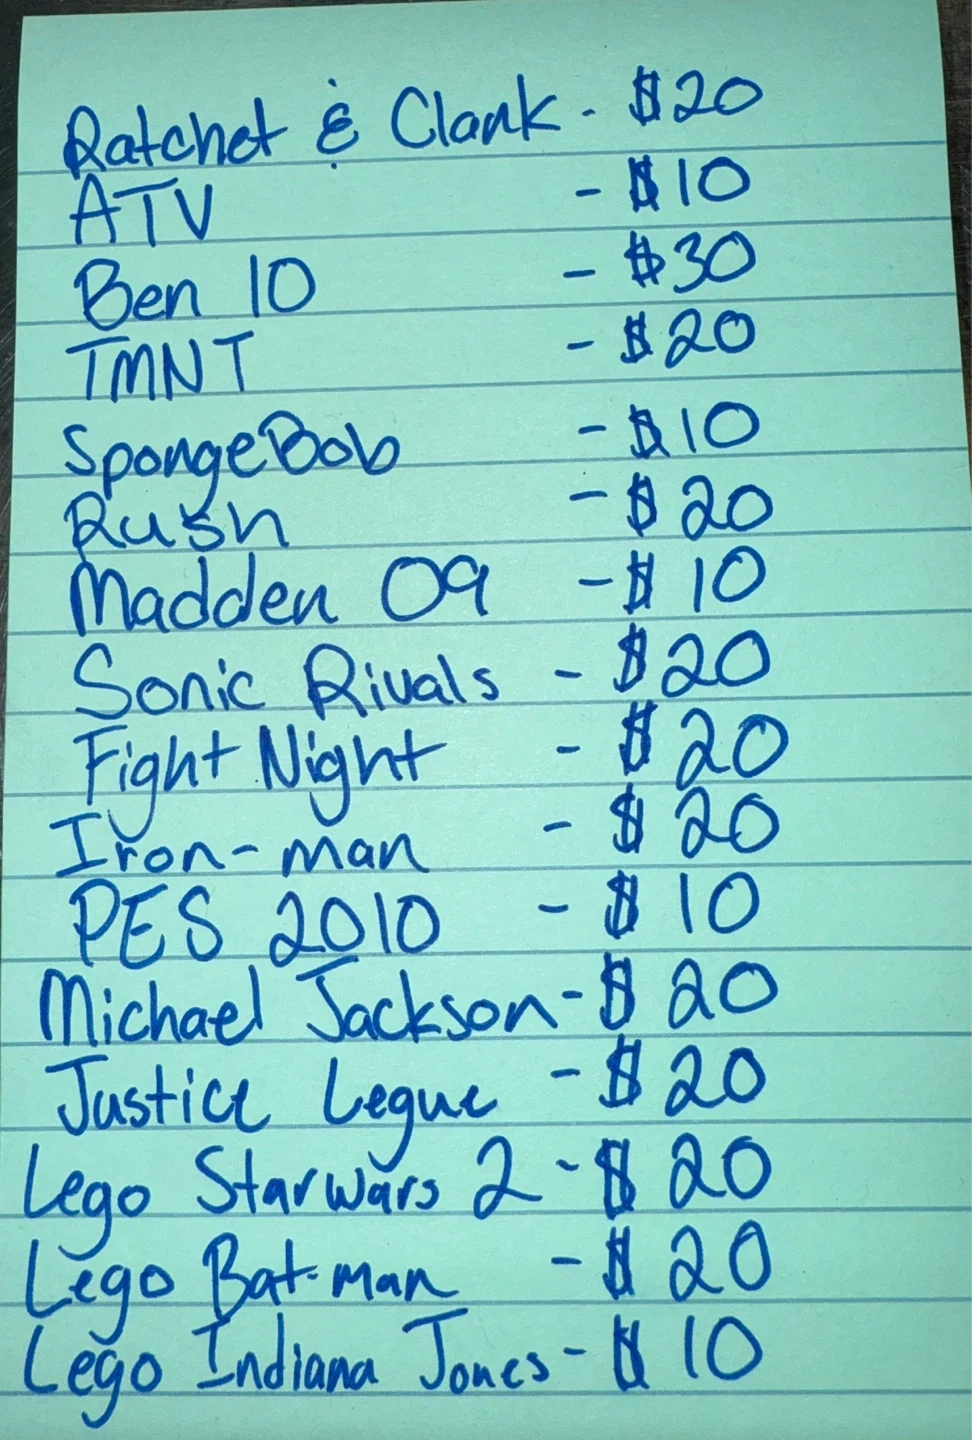 Ratchet & Clank - $20
ATV - $10
Ben 10 - $30
TMNT - $20
SpongeBob - $10
Rush - $20
Madden 09 - $10
Sonic Rivals - $20
Fight Night - $20
Iron-man - $20
PES 2010 - $10
Michael Jackson - $20
Justice Legue - $20
Lego Starwars 2 - $20
Lego Bat-man - $20
Lego Indiana Jones - $10